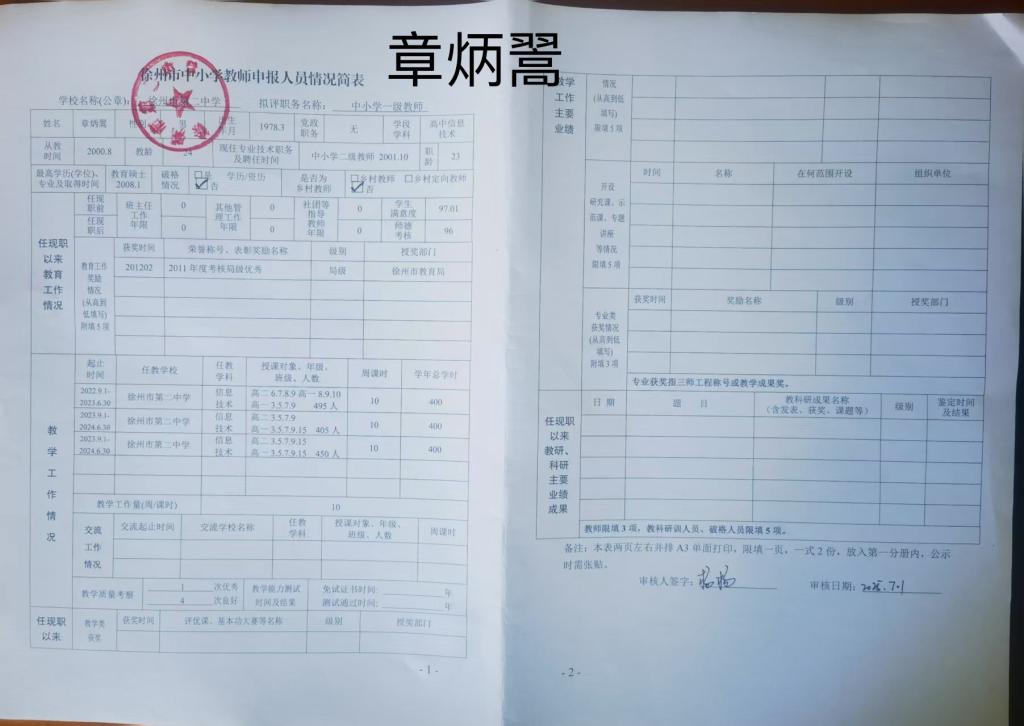 章炳翯
徐州市中小学教师申报人员情况简表
学校名称(公章): 徐州市第二中学 拟评职务名称: 中小学一级教师
姓名 章炳翯 性别 男 出生年月 1978.3 党政职务 无 学段学科 高中信息技术
从教时间 2000.8 教龄 24 现任专业技术职务及聘任时间 中小学二级教师 2001.10 职龄 23
最高学历(学位)、专业及取得时间 教育硕士 2008.1 破格情况 □是 ☑否 学历/资历 是否为乡村教师 □乡村教师 □乡村定向教师 ☑否
任现职以来教育工作情况
任现职前 班主任工作年限 0 其他管理工作年限 0 社团等指导教师年限 0 学生满意度 97.01
任现职后 0 0 0 师德考核 96
教育工作奖励情况(从高到低填写)附填5项
获奖时间 荣誉称号、表彰奖励名称 级别 授奖部门
201202 2011年度考核局级优秀 局级 徐州市教育局
教学工作情况
起止时间 任教学校 任教学科 授课对象、年级、班级、人数 周课时 学年总学时
2022.9.1-2023.6.30 徐州市第二中学 信息技术 高二 6.7.8.9 高一 8.9.10 高一 3.5.7.9 495人 10 400
2023.9.1-2024.6.30 徐州市第二中学 信息技术 高二 3.5.7.9 高一 3.5.7.9.15 405人 10 400
2023.9.1-2024.6.30 徐州市第二中学 信息技术 高二 3.5.7.9.15 高一 3.5.7.9.15 450人 10 400
教学工作量(周/课时) 10
交流工作情况 交流起止时间 交流学校名称 任教学科 授课对象、年级、班级、人数 周课时
教学质量考察 1 次优秀 教学能力测试时间及结果 免试证书时间: 年
4 次良好 测试通过时间: 年
任现职以来 教学类获奖 获奖时间 评优课、基本功大赛等名称 级别 授奖部门
- 1 -
教学工作主要业绩
情况(从高到低填写)限填5项
开设研究课、示范课、专题讲座等情况限填5项
时间 名称 在何范围开设 组织单位
专业类获奖情况(从高到低填写)附填3项
获奖时间 奖励名称 级别 授奖部门
专业获奖指三师工程称号或教学成果奖。
任现职以来教研、科研主要业绩成果
日期 题目 教科研成果名称(含发表、获奖、课题等) 级别 鉴定时间及结果
教师限填3项，教科研训人员、破格人员限填5项。
备注：本表两页左右并排A3单面打印，限填一页，一式2份，放入第一分册内，公示
时需张贴。
审核人签字: 审核日期: 2025.7.1
- 2 -